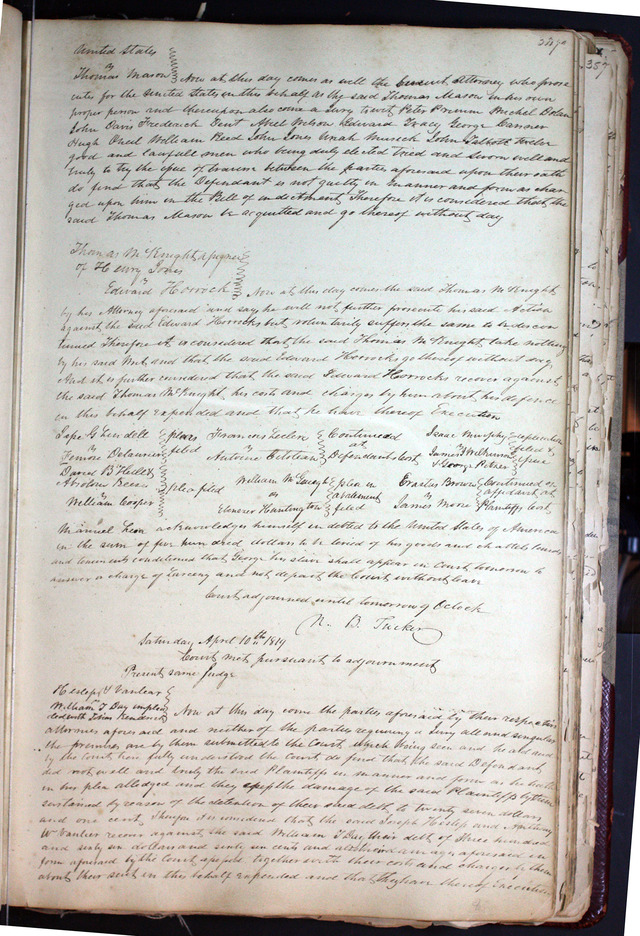 357
United States
vs
Thomas Mason Now at this day comes as well the Circuit Attorney who prose
cutes for the United States in this behalf as the said Thomas Mason in his own
proper person and thereupon also came a Jury towit Peter Primm Michel Dolan
John Davis Frederick Gent Abel Nelson Edward Tracy George Casner
Hugh Oneil William Reed John Jones John Talbott
good and lawfull men who being duly elected tried and sworn well and
truly to try the issue of traverse between the parties aforesaid upon their oath
do find that the Defendant is not guilty in manner and form as char
ged upon him in the Bill of indictment Therefore it is considered that the
said Thomas Mason be acquitted and go thereof without day
Thomas McKnight Assignee
of Henry Jones
vs
Edward Horrock Now at this day comes the said Thomas McKnight
by his Attorney aforesaid and says he will not further prosecute his said Action
against the said Edward Horrocks but voluntarily suffers the same to be discon
tinued Therefore it is considered that the said Thomas McKnight take nothing
by his said Writ and that the said Edward Horrocks go thereof without day
And it is further considered that the said Edward Horrocks recover against
the said Thomas McKnight his costs and charges by him about his defence
in this behalf expended and that he have thereof Execution
vs
pleas filed
Francois Leclere
vs
Antoine
Continued at Defendants Cost
Isaac Murphy
vs
James Wilkinson
& George
replication filed & issue
David B
Absolom
vs
William Cooper
plea filed
William
vs
Ebenezer Huntington
plea in abatement filed
Erastus Brown
vs
James Moore
Continued on affidavit at Plaintiffs Cost
Manuel Leon acknowledges himself indebted to the United States of America
in the sum of five hundred dollars to be levied of his goods and chattels lands
and tenements conditioned that George his slave shall appear in Court tomorrow to
answer a charge of Larceny and not depart the Court without leave
Court adjourned until tomorrow 9 Oclock
N. B. Tucker
Saturday April 10th 1819
Court met pursuant to adjournment
Present same Judge
Heslep & Vanlear
vs
William T Day implea
ded with Now at this day come the parties aforesaid by their respective
attornies aforesaid and neither of the parties requiring a Jury all and singular
the premises are by them submitted to the Court which being seen and heard and
by the Court here fully understood the Court do find that the said Defendant
did not well and truly the said Plaintiffs in manner and form as he hath
in his plea alledged and they assess the damage of the said Plaintiffs by them
sustained by reason of the detention of their said debt to twenty seven dollars
and one cent Therefore it is considered that the said Joseph Heslep and Anthony
W Vanlier recover against the said William T Day their debt of three hundred
and sixty six dollars and sixty six cents and also their damages aforesaid in
form aforesaid by the Court assessed together with their costs and charges by them
about their suit in this behalf expended and that they have thereof Execution